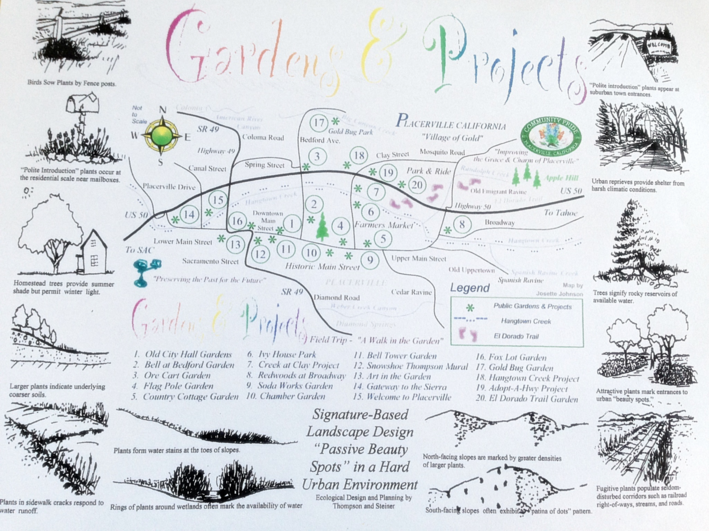 Gardens & Projects
Birds Sow Plants by Fence posts.
"Polite introduction" plants appear at
suburban town entrances.
WELCOME
Not
to
Scale
N
W
E
S
"Polite Introduction" plants occur at
the residential scale near mailboxes.
Homestead trees provide summer
shade but permit winter light.
Larger plants indicate underlying
coarser soils.
Plants in sidewalk cracks respond to
water runoff.
SR 49
Coloma Road
Highway 49
Canal Street
Spring Street
Placerville Drive
US 50
17
Gold Bug Park
Bedford Ave.
3
PLACERVILLE CALIFORNIA
"Village of Gold"
18
Clay Street
Mosquito Road
19
Park & Ride
20
"Improving
the Grace & Charm of Placerville"
COMMUNITY PRIDE
Apple Hill
Old Emigrant Ravine
US 50
Highway 50
To Tahoe
Broadway
8
7
6
Farmers Market
5
4
2
1
Downtown
Main
Street
16
15
14
13
12
11
10
9
Lower Main Street
Sacramento Street
Historic Main Street
Upper Main Street
To SAC
"Preserving the Past for the Future"
PLACERVILLE
SR 49
Diamond Road
Cedar Ravine
Old Uppertown
Spanish Ravine
Hangtown Creek
Map by
Josette Johnson
Legend
Public Gardens & Projects
Hangtown Creek
El Dorado Trail
Garden & Projects
Field Trip - "A Walk in the Garden"
1. Old City Hall Gardens
2. Bell at Bedford Garden
3. Ore Cart Garden
4. Flag Pole Garden
5. Country Cottage Garden
6. Ivy House Park
7. Creek at Clay Project
8. Redwoods at Broadway
9. Soda Works Garden
10. Chamber Garden
11. Bell Tower Garden
12. Snowshoe Thompson Mural
13. Art in the Garden
14. Gateway to the Sierra
15. Welcome to Placerville
16. Fox Lot Garden
17. Gold Bug Garden
18. Hangtown Creek Project
19. Adopt-A-Hwy Project
20. El Dorado Trail Garden
Urban reprieves provide shelter from
harsh climatic conditions.
Trees signify rocky reservoirs of
available water.
Attractive plants mark entrances to
urban "beauty spots."
Fugitive plants populate seldom-
disturbed corridors such as railroad
right-of-ways, streams, and roads.
Plants form water stains at the toes of slopes.
Rings of plants around wetlands often mark the availability of water
Signature-Based
Landscape Design
"Passive Beauty
Spots" in a Hard
Urban Environment
Ecological Design and Planning by
Thompson and Steiner
North-facing slopes are marked by greater densities
of larger plants.
South-facing slopes often exhibit "patina of dots" pattern.